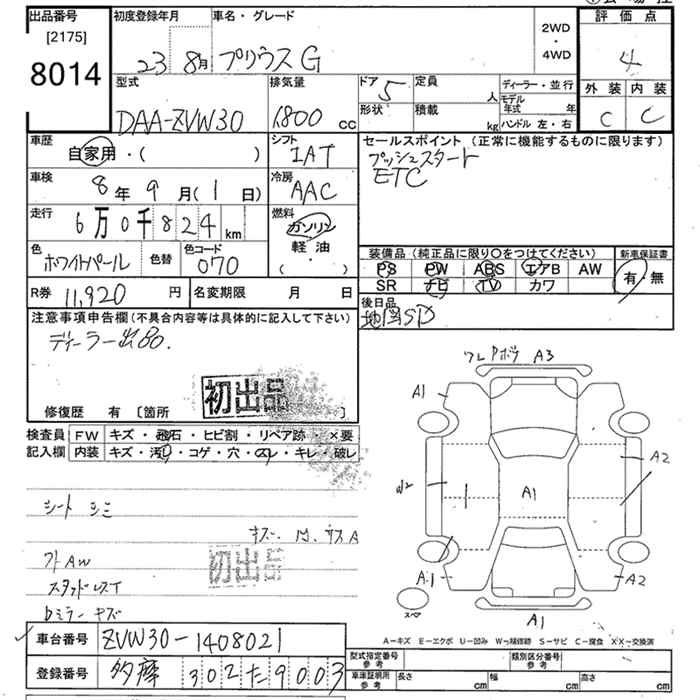 出品番号
[2175]
8014
初度登録年月
23 8月
車名・グレード
プリウス G
2WD
・
4WD
評価点
4
外装 内装
C C
型式
DAA-ZVW30
排気量
1800 cc
ドア 5
形状
定員 人
積載 kg
ディーラー・並行
モデル年式 年
ハンドル 左・右
車歴
自家用・( )
シフト
IAT
セールスポイント(正常に機能するものに限ります)
プッシュスタート
ETC
車検
8年9月(1日)
冷房
AAC
走行
6万0千824km
燃料
ガソリン
軽油
( ・ )
色
ホワイトパール
色替
色コード
070
装備品(純正品に限り〇をつけてください)
PS PW ABS エアB AW
SR ナビ TV カワ
新車保証書
有・無
R券 11,920円
名変期限 月 日
後日品
地図SD
注意事項申告欄(不具合内容等は具体的に記入して下さい)
ディーラー出品.
初出品
修復歴 有 [箇所 ]
検査員
記入欄
FW キズ・飛石・ヒビ割・リペア跡 ×要
内装 キズ・汚レ・コゲ・穴・スレ・キレ・破レ
シート シミ
初出品
スタッドレスT
Dミラー キズ
A3
A1
A2
W2
A1
A1
A2
スペア
A1
A-キズ E-エクボ U-凹み W-板金修跡 S-サビ C-腐食 XX-交換済
車台番号 ZVW30-1408021
登録番号 多摩 302 た 9003
型式指定番号
参考
類別区分番号
参考
車庫証明所
参考
長さ cm 幅 cm 高さ cm